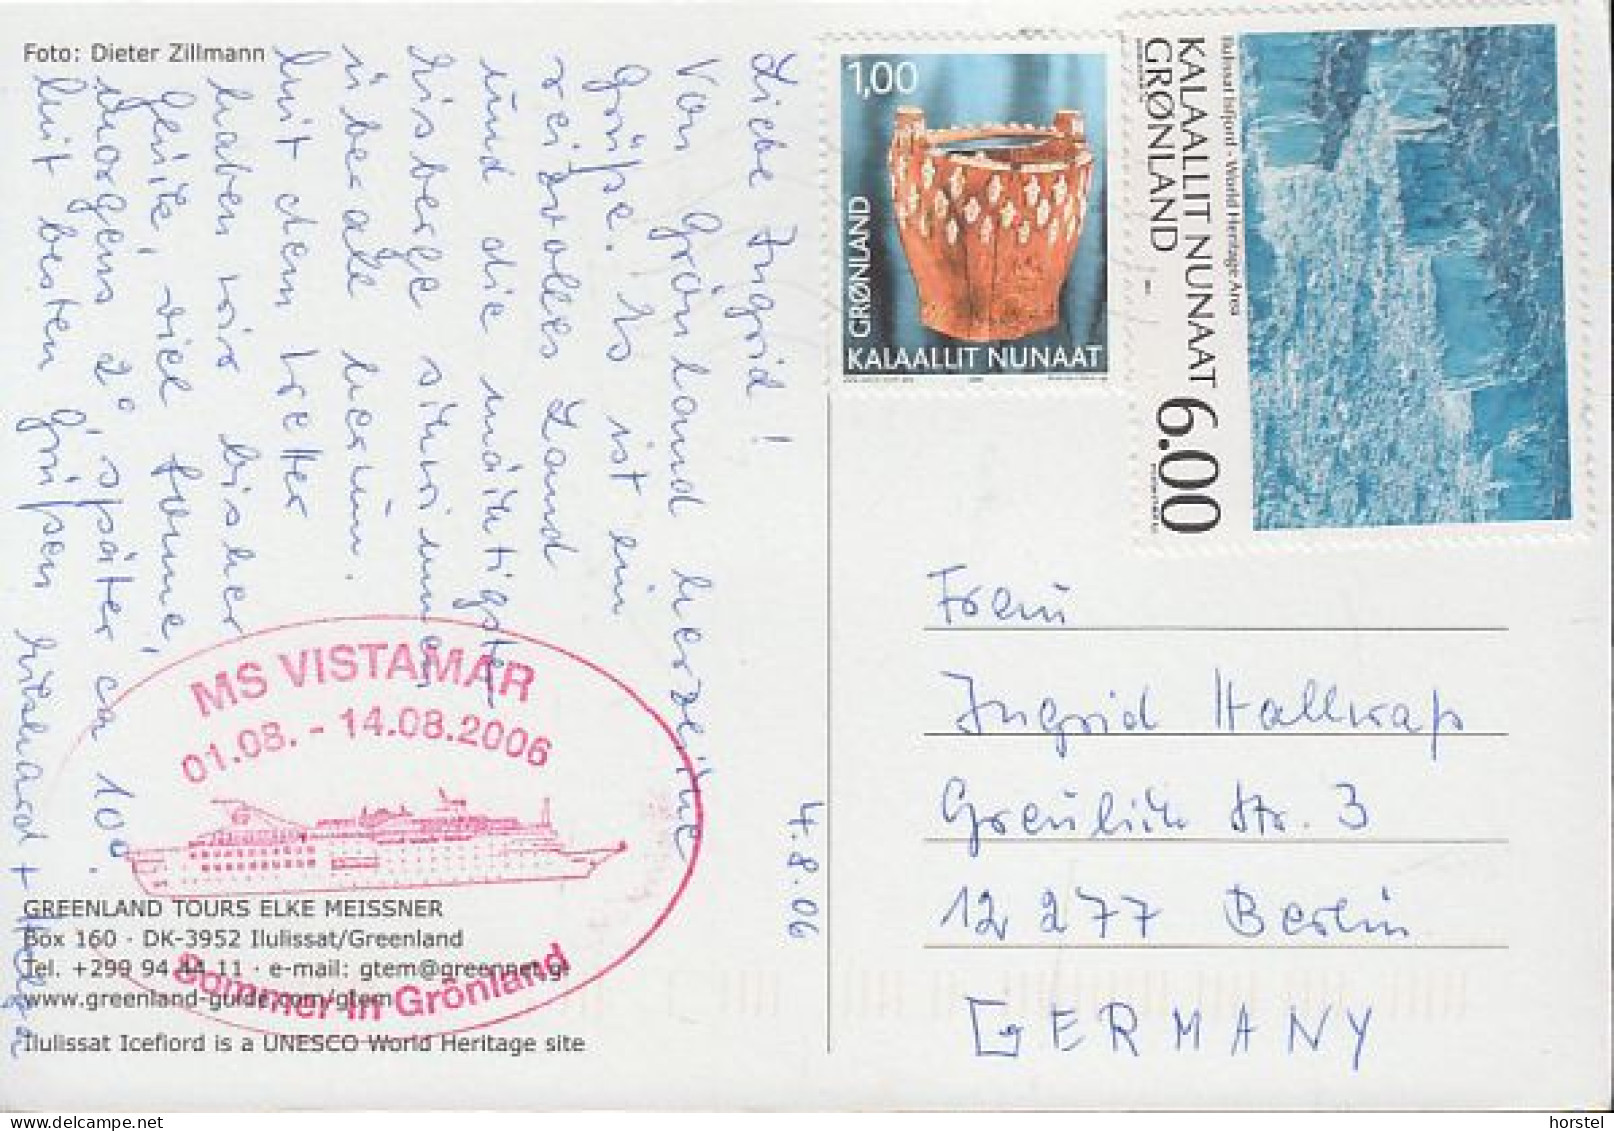 Foto: Dieter Zillmann
Liebe Ingrid!
Von Grönland herzliche
Grüße. Es ist ein
reizvolles Land
und die mächtigsten
Eisberge schwimmen
überall herum.
Mit dem Wetter
haben wir bisher
Glück, viel Sonne,
morgens 2° später ca 10°.
Mit besten Grüßen + Helga
4.8.06
1,00
GRØNLAND
KALAALLIT NUNAAT
Ilulissat Isfjord - World Heritage Area
KALAALLIT NUNAAT 6.00
GRØNLAND
MS VISTAMAR
01.08. - 14.08.2006
Sommer in Grönland
GREENLAND TOURS ELKE MEISSNER
Box 160 · DK-3952 Ilulissat/Greenland
Tel. +299 94 44 11 · e-mail: gtem@greennet.gl
www.greenland-guide.com/gtem
Ilulissat Icefiord is a UNESCO World Heritage site
Frau
Ingrid Hallwaß
Greulich Str. 3
12 277 Berlin
GERMANY
horstel